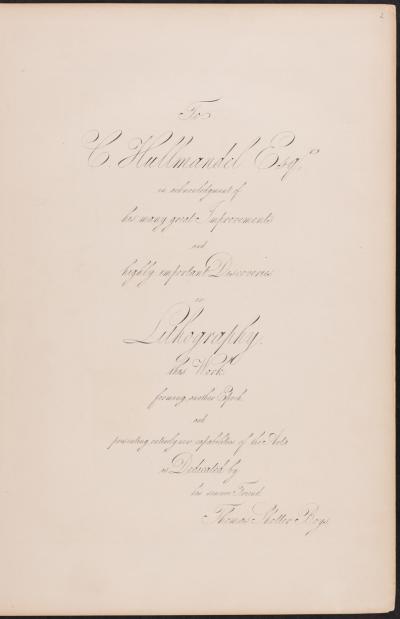 2
To
C. Hullmandel Esq.re
in acknowledgment of
his many great Improvements
and
highly important Discoveries
in
Lithography.
this Work
forming another Epoch
and
presenting entirely new capabilities of the Art
is Dedicated by
his sincere Friend
Thomas Shotter Boys